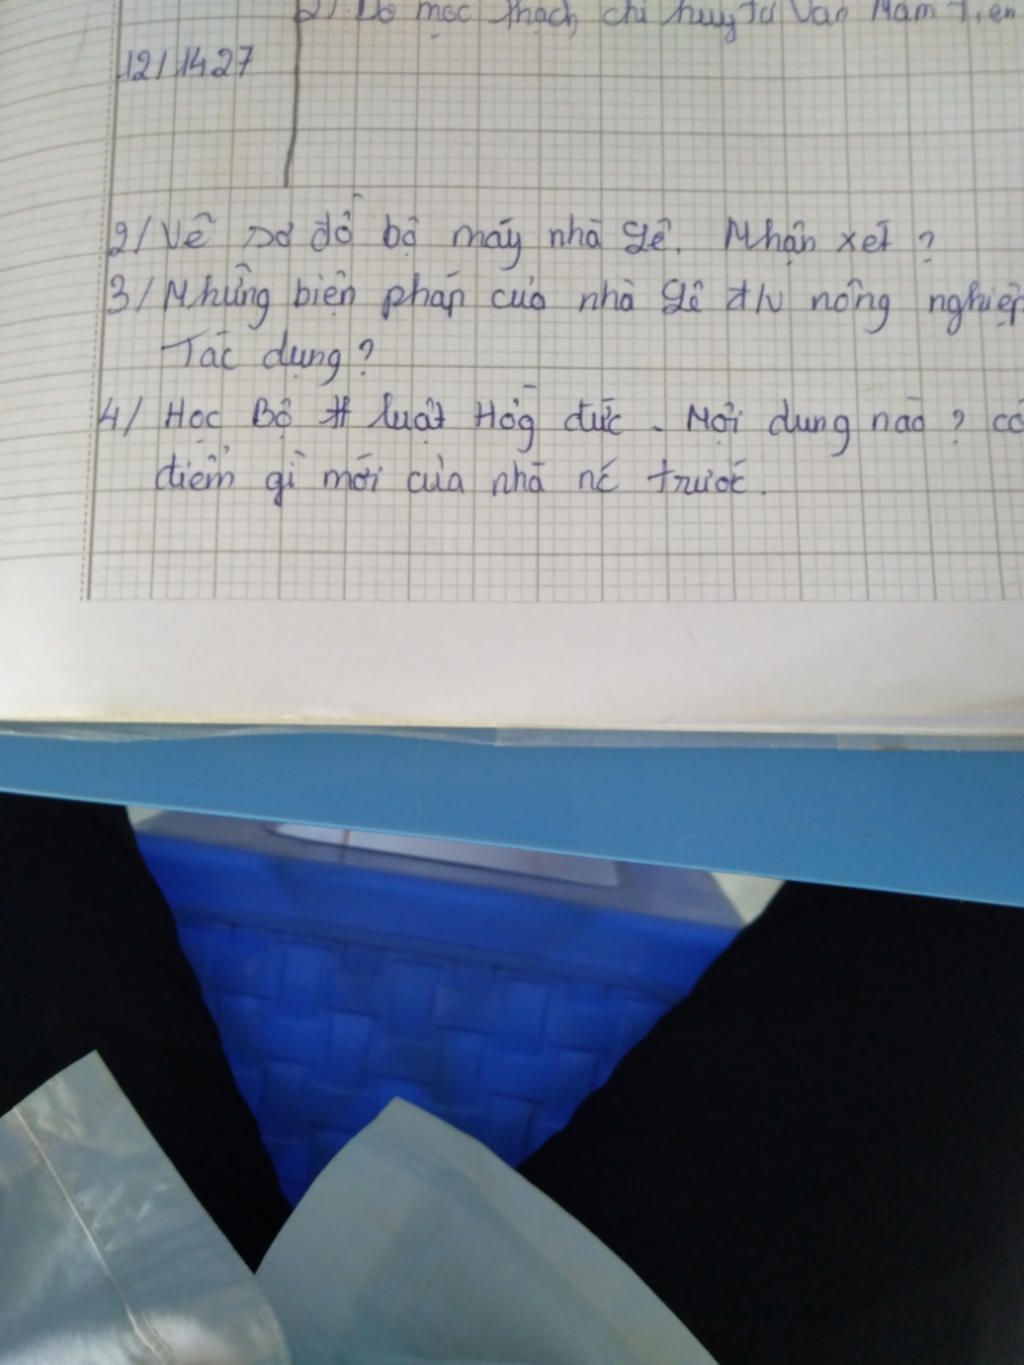 b). Do mộc Thạch chỉ huy từ Vân Nam tiến
12/1427
2/ Vẽ sơ đồ bộ máy nhà Lê. Nhận xét ?
3/ Những biện pháp của nhà Lê đ/v nông nghiệp
Tác dụng ?
4/ Học Bộ luật Hồg đức. Nội dung nào ? có
điểm gì mới của nhà nc trước.